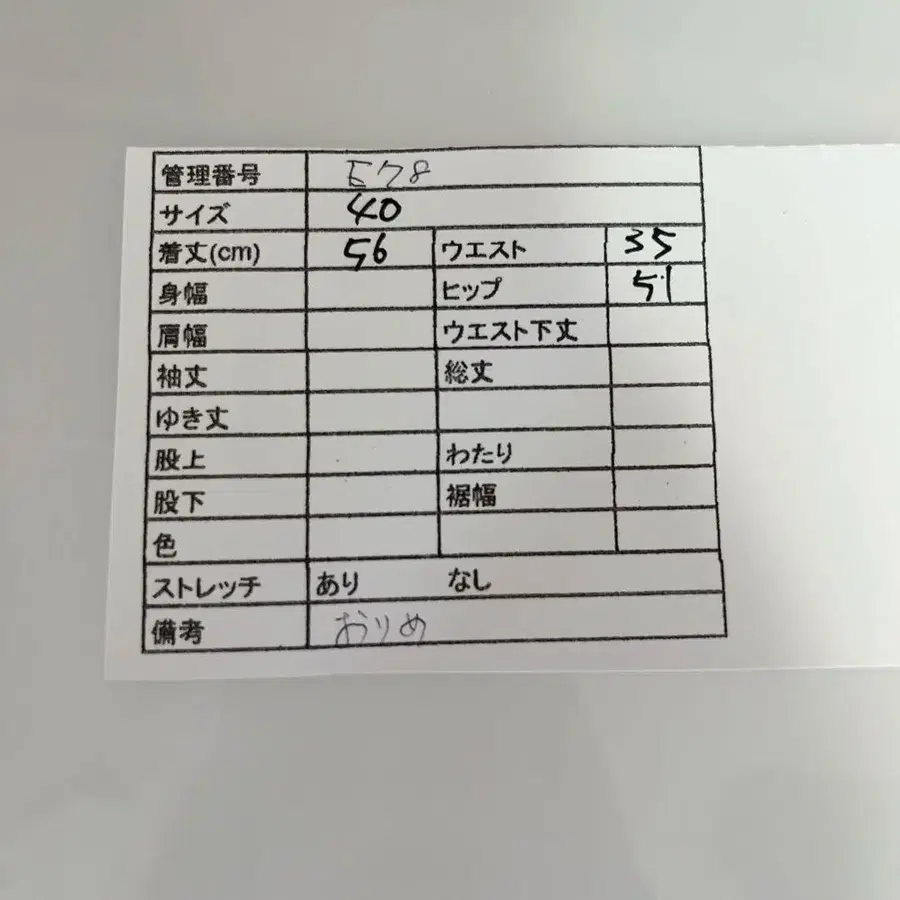 管理番号 E78
サイズ 40
着丈(cm) 56 ウエスト 35
身幅 ヒップ 51
肩幅 ウエスト下丈
袖丈 総丈
ゆき丈
股上 わたり
股下 裾幅
色
ストレッチ あり なし
備考 おりめ